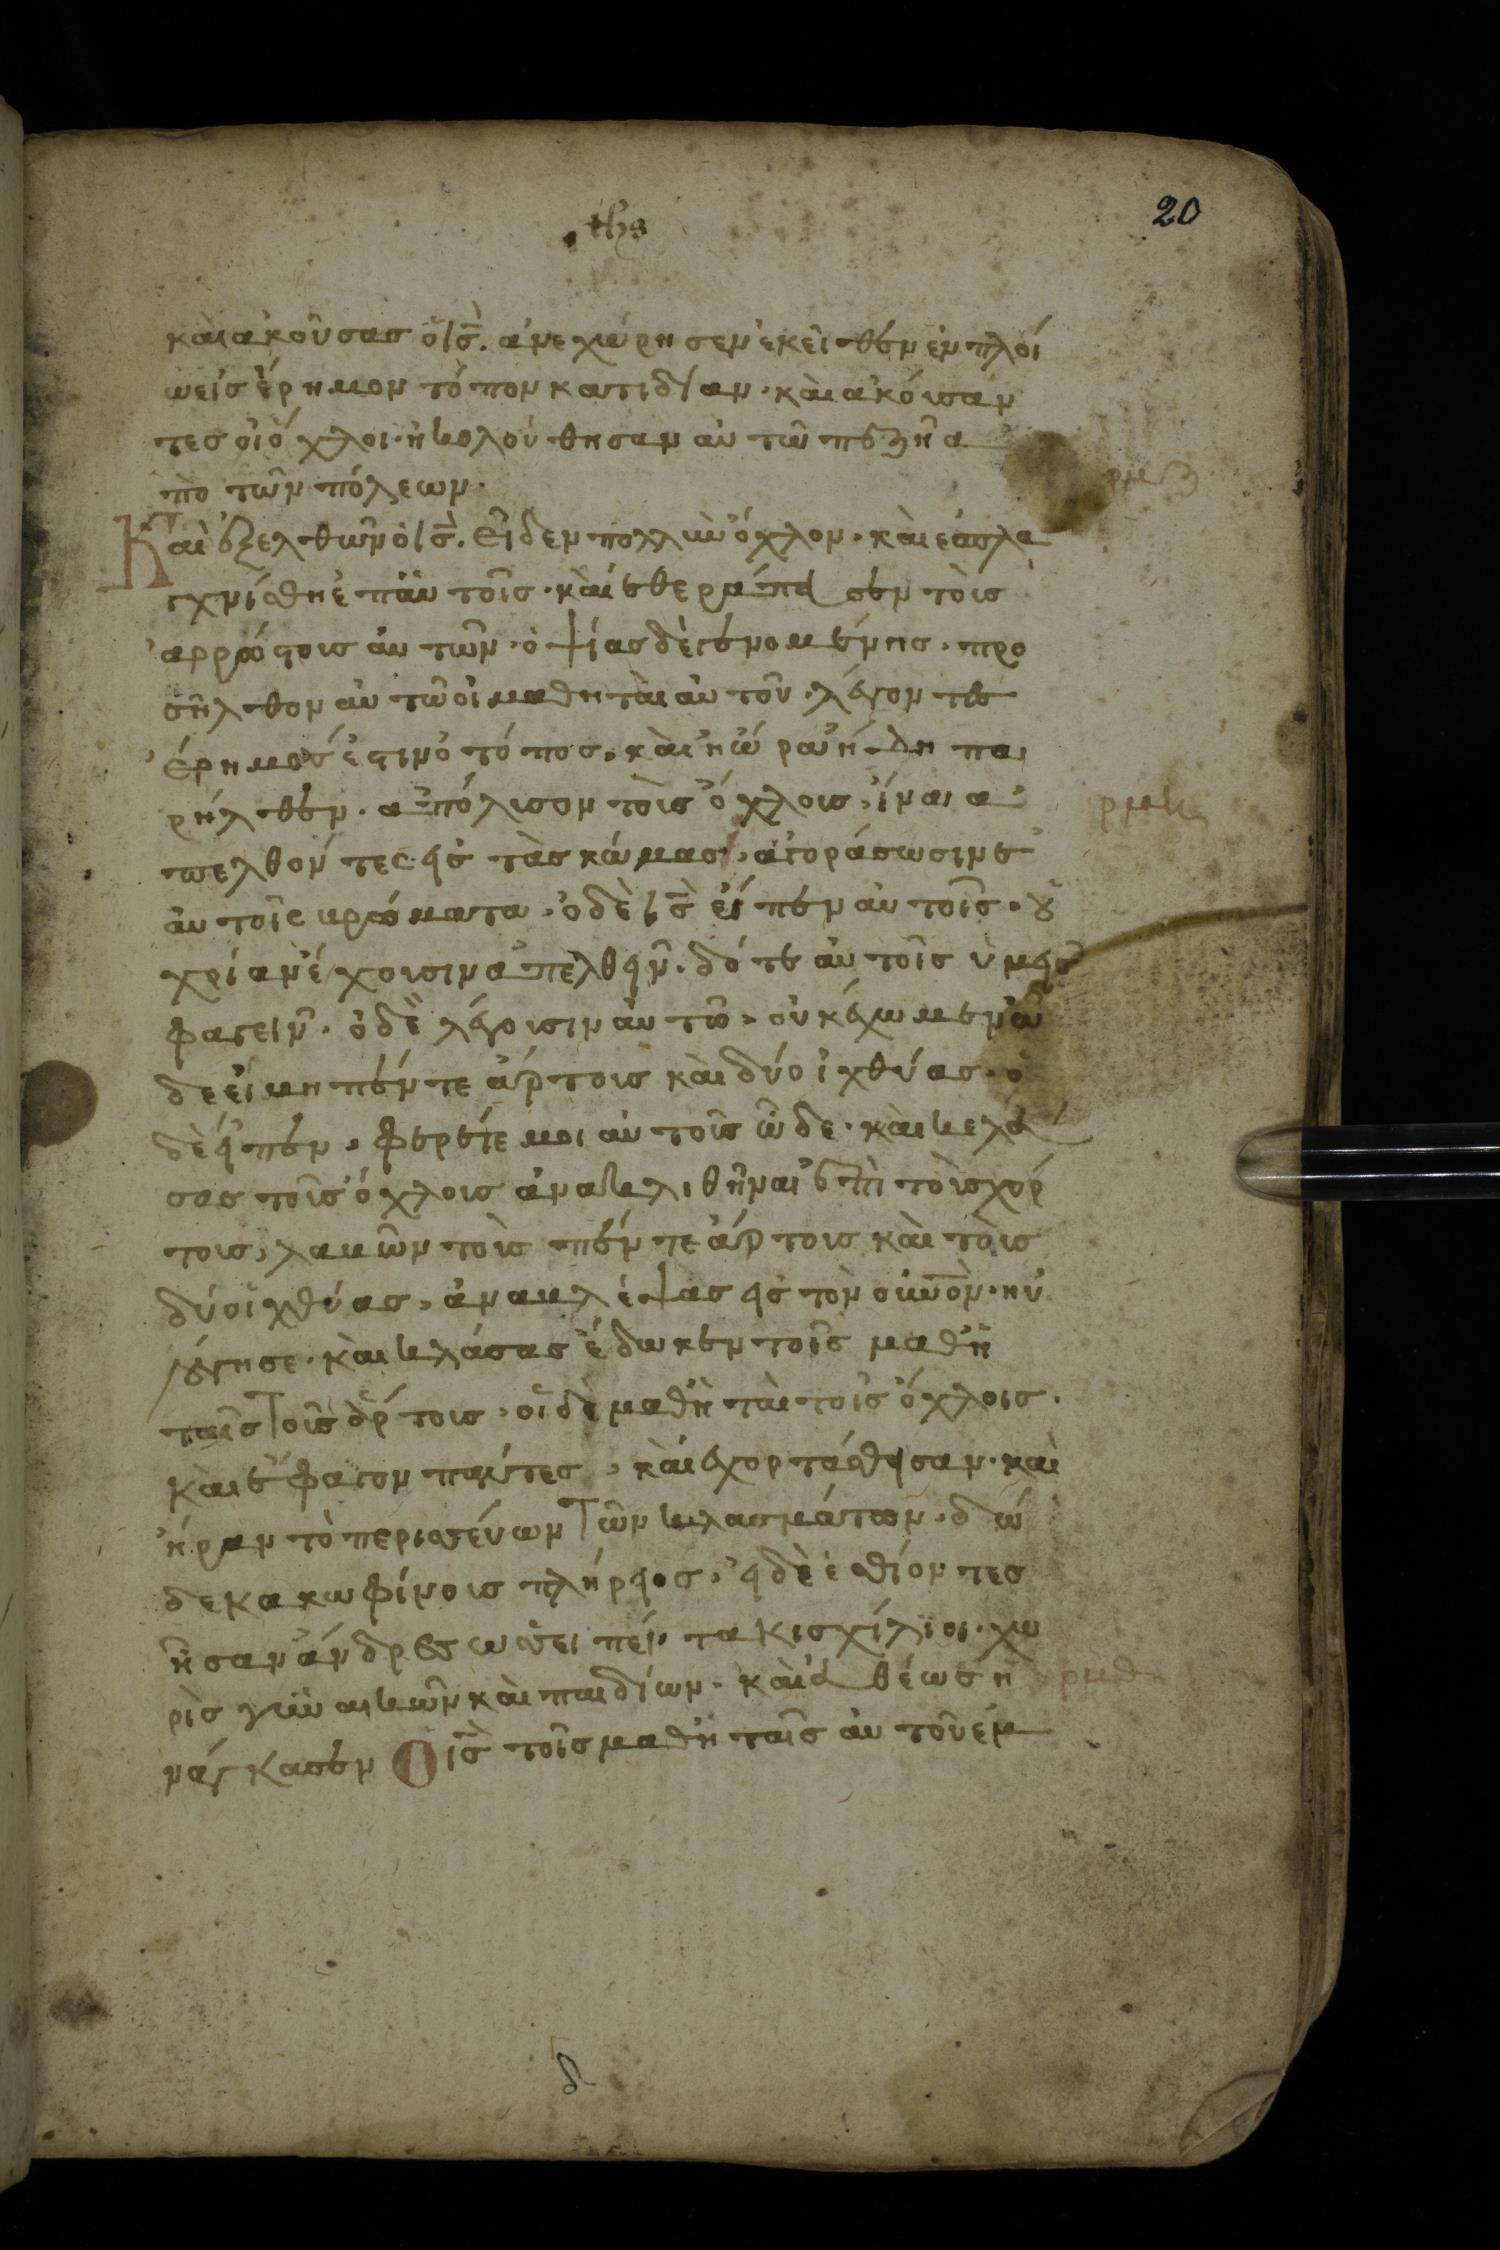 ths
20
καὶ ἀκούσας ὁ ις̅. ἀνεχώρησεν ἐκεῖθεν ἐν πλοί
ω εἰς ἔρημον τόπον κατιδίαν. καὶ ἀκούσαν
τες οἱ ὄχλοι. ἠκολούθησαν αὐτῶ πεζῆ α
πὸ τῶν πόλεων.
Καὶ ἐξελθὼν ὁ ις̅. εἶδεν πολλὺν ὄχλον. καὶ ἐσπλα
γχνίσθη ἐπ αὐτοῖς. καὶ ἐθεράπευσεν τοὺς
ἀρρώστους αὐτῶν. ὀψίας δὲ γενομένης. προ
σῆλθον αὐτῶ οἱ μαθηταὶ αὐτοῦ. λέγοντες
ἔρημος ἐστιν ὁ τόπος. καὶ ἡ ὥρα ἤδη πα
ρήλθεν. ἀπόλυσον τοὺς ὄχλους, ἵνα α
πελθόντες εἰς τὰς κώμας, ἀγοράσωσιν ε
αυτοῖς βρώματα. ὁ δὲ ις̅ εἶπεν αὐτοῖς. οὐ
χρίαν ἔχουσιν ἀπελθεῖν. δότε αὐτοῖς ὑμεῖς
φαγεῖν. ὁ δὲ λέγουσιν αὐτῶ, οὐκ ἔχωμεν ὧ
δε εἰ μὴ πέντε ἄρτους καὶ δύο ἰχθύας. ὁ
δὲ εἶπεν, φέρετέ μοι αὐτοὺς ὧδε. καὶ κελεύ
σας τοῖς ὄχλοις ἀνακλιθῆναι ἐπὶ τοὺς χόρ
τους, λαβὼν τοὺς πέντε ἄρτους καὶ τοὺς
δύο ἰχθύας, ἀναβλέψας εἰς τὸν οὐνὸν. ηὐ
λόγησε. καὶ κλάσας ἔδωκεν τοῖς μαθη
ταῖς τοὺς ἄρτους. οἱ δὲ μαθηταὶ τοῖς ὄχλοις.
καὶ ἔφαγον πάντες, καὶ ἐχορτάσθησαν. καὶ
ἦραν τὸ περισσεύων τῶν κλασμάτων. δώ
δεκα κωφίνους πλήρεις. οἱ δὲ ἐσθίοντες
ἦσαν ἄνδρες ὡσεὶ πεντακισχίλιοι. χω
ρὶς γυναικῶν καὶ παιδίων. καὶ εὐθέως ἠ
νάγκασεν Ὁ ις̅ τοῖς μαθηταῖς αὐτοῦ ἐμ
ρμζ
ρμη
ρμθ
δ